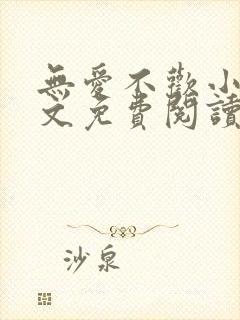 無愛不歡小
文免費閱讀
沙泉